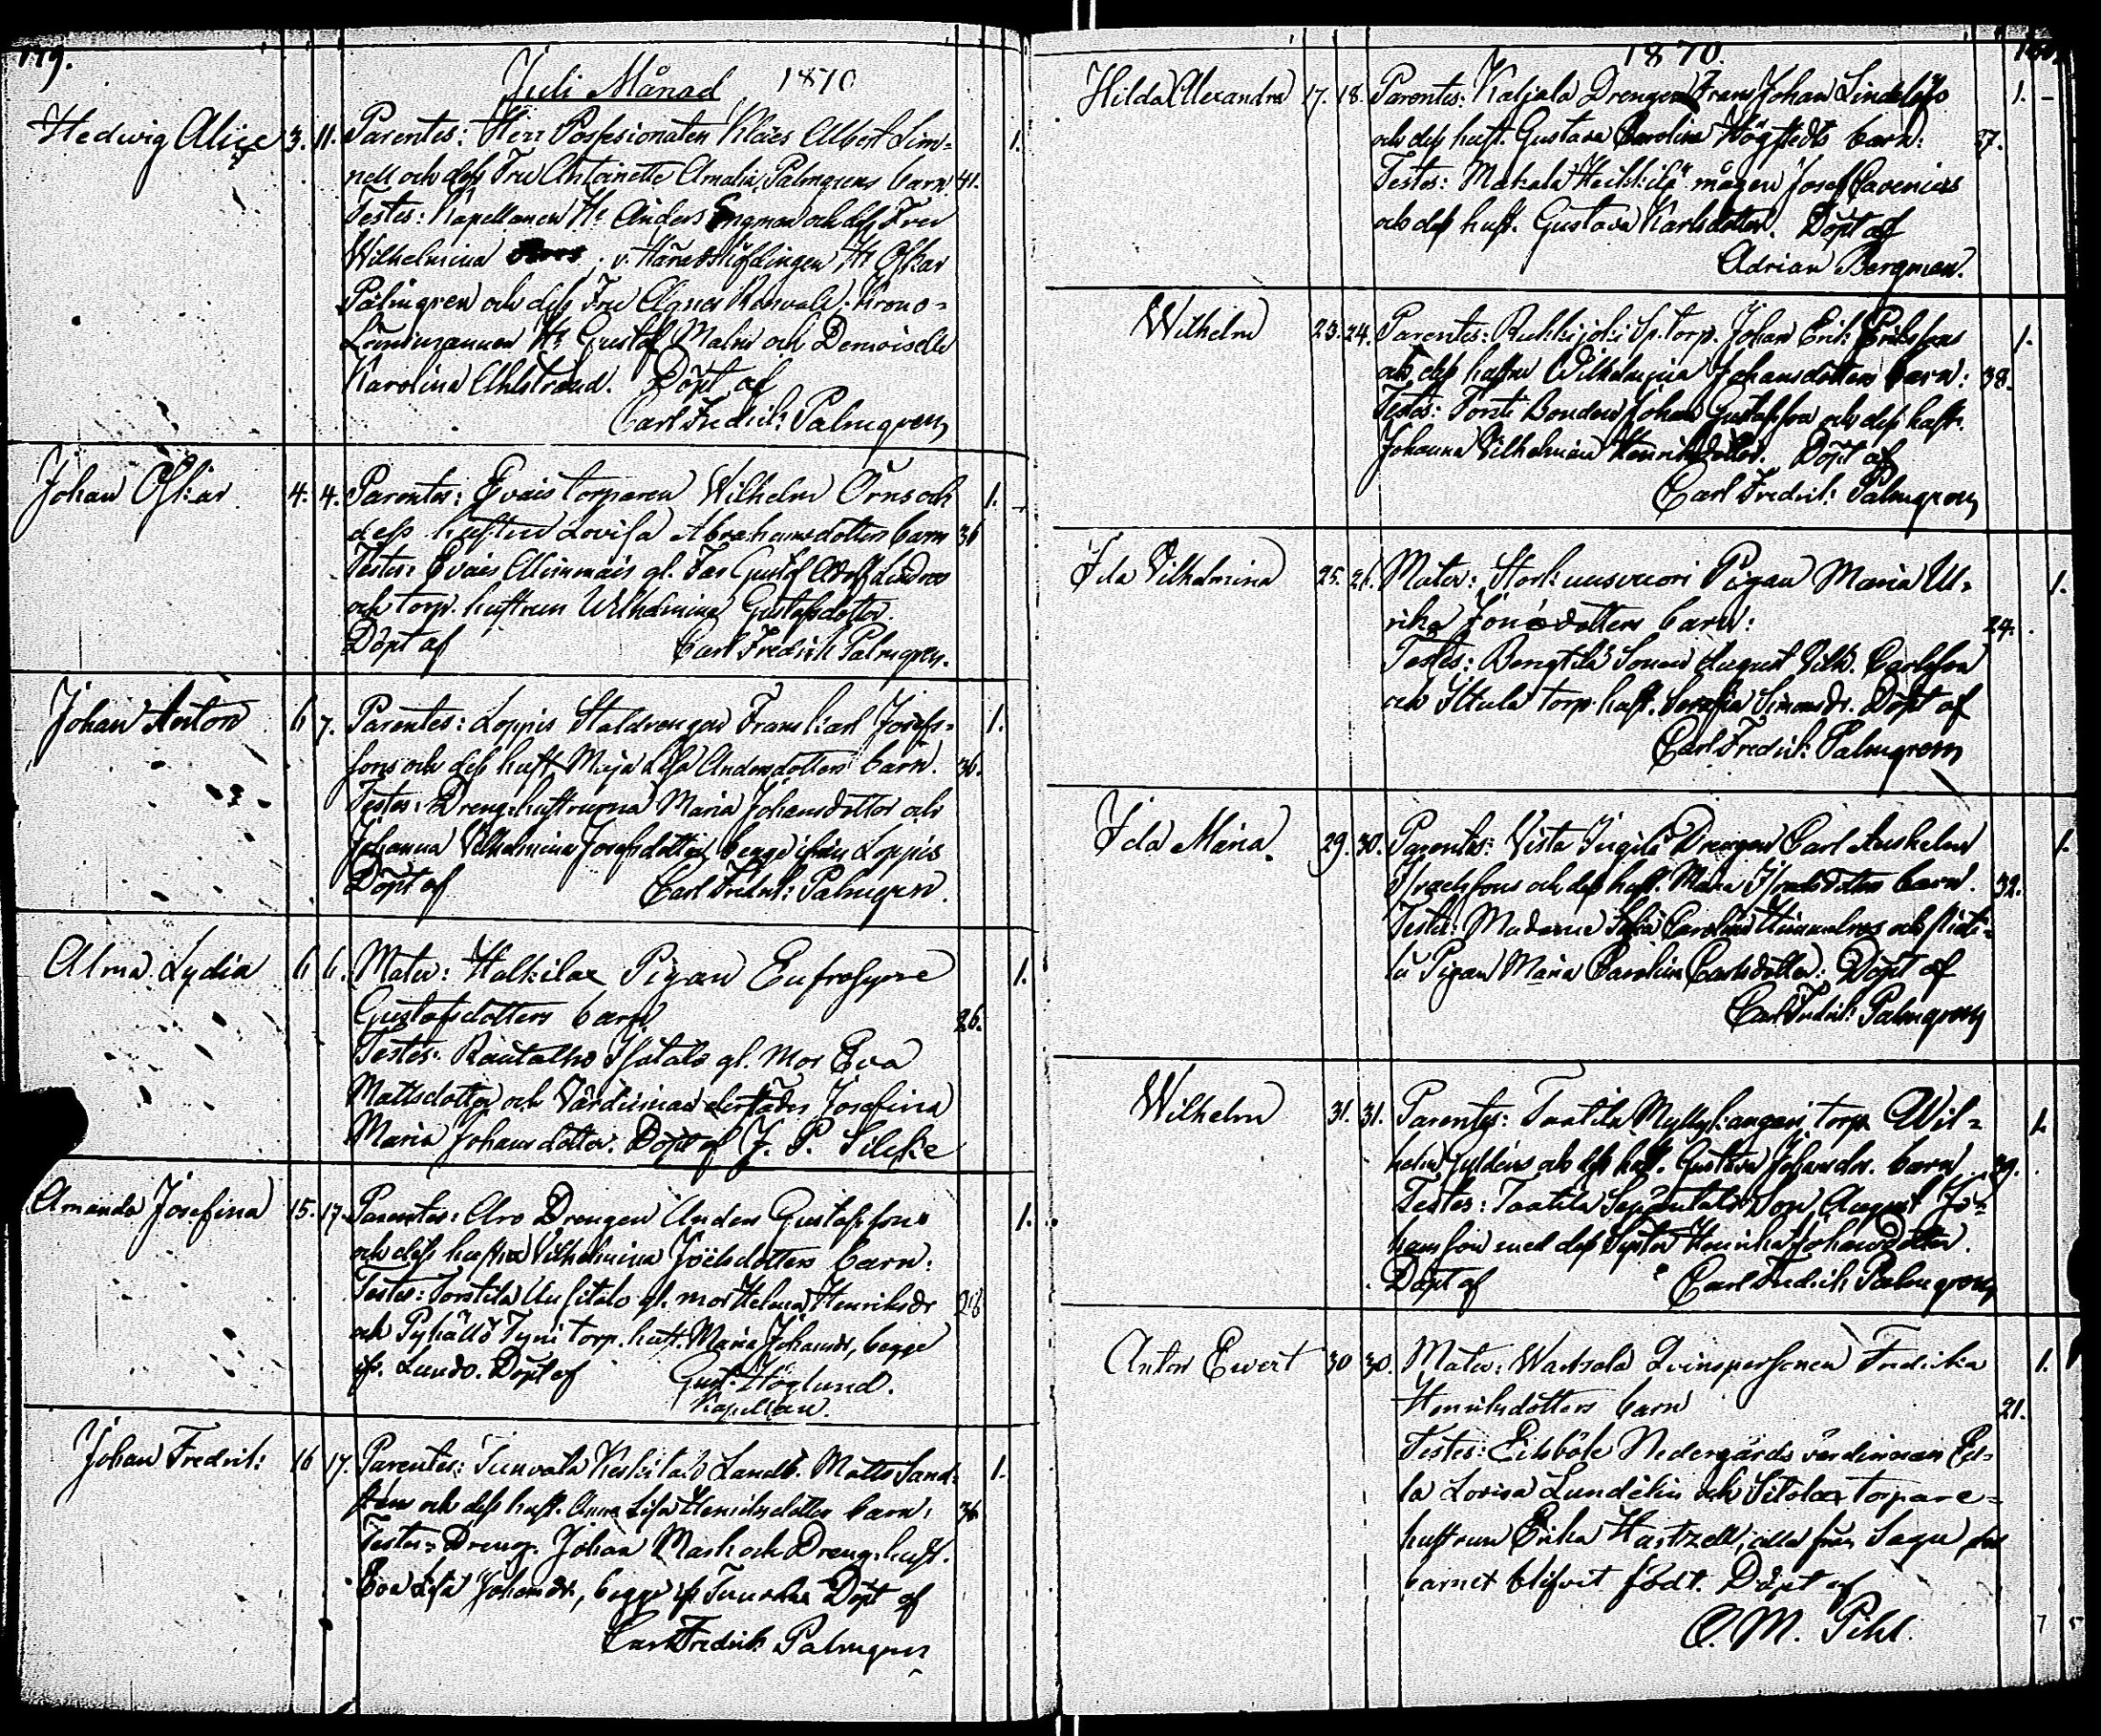 179.
Juli Månad 1870
Hedwig Alice 3. 11. Parentes: Herr Possesionaten Klaes Albert Lim= 1.
nell och dess Fru Antoinette Amalia Palmgrens barn 41.
Testes: Kapellanen Hr Anders Engman och dess Fru
Wilhelmina ; v. Häradshöfdingen Hr Oskar
Palmgren och dess Fru Agnes ; Krono=
Länsmannen Hr Gustaf Malm och Demoiselle
Karolina Ahlstrand. Döpt af
Carl Fredrik Palmgren
Johan Oskar 4. 4. Parentes: Evais torparen Wilhelm Örns och 1.
dess hustru Lovisa Abrahamsdotters barn 36
Testes: Evais gl. Far Gustaf Adolf Lindroos
och torp. hustrun Wilhelmina Gustafsdotter.
Döpt af Carl Fredrik Palmgren.
Johan Anton 6 7. Parentes: Loppis Staldrengen Frans Karl Josefs= 1.
sons och dess hust. Maja Lisa Andersdotters barn. 36.
Testes: Drengehustrurna Maria Johansdotter och
Johanna Vilhelmina Josefsdotter, begge ifrån Loppis
Döpt af Carl Fredrik: Palmgren.
Alma Lydia 6 6. Mater: Halkilax Pigan Eufrosyne 1.
Gustafsdotters barn 26.
Testes: Rautalho Isotalo gl. Mor Eva
Mattsdotter och Värdinnan dersädes Josefina
Maria Johansdotter. Döpt af J. P. Silcke
Amanda Josefina 15. 17. Parentes: Aro Drengen Anders Gustafssons 1.
och dess hustru Vilhelmina Joëlsdotters barn:
Testes: Torstila Ausitalo gl. mor Helena Henriksdr 28
och Pyhältö Tyni torp. hust. Maria Johansdr, begge
ifr. Lundo. Döpt af Gust. Höglund.
Kapellan.
Johan Fredrik: 16 17. Parentes: Tunvala Keskitalo Landb. Matts Sand= 1.
stens och dess hust. Anna Lisa Henriksdotters barn: 36
Testes: Dreng. Johan Mask och Drengehust.
Eva Lisa Johansdr, begge ifr. Döpt af
Carl Fredrik Palmgren
1870.
Hilda Alexandra 17. 18. Parentes: Kaljala Drengen Frans Johan Lindelöfs 1.
och dess hust. Gustava Carolina Högstedts barn: 37.
Testes: Makala Heikkilä mågen Josef
och dess hust. Gustava Karlsdotter. Döpt af
Adrian Bergman.
Wilhelm 23. 24. Parentes: Ruhkijoki Sp. torp. Johan Erik Erikssons 1.
och dess hustru Wilhelmina Johansdotters barn: 38.
Testes: Bonden Johan Gustafsson och dess hust.
Johanna Vilhelmina Henriksdotter. Döpt af
Carl Fredrik: Palmgren
Ida Vilhelmina 25. 26. Mater: Pigan Maria Ul= 1.
rika Jonædotters barn: 24.
Testes: Bengtilä Sonen August Vilh. Carlsson
och Iltula torp. hust. Serafia Simonsdr. Döpt af
Carl Fredrik: Palmgren
Ida Maria. 29. 30. Parentes: Vista Drengen Carl Anshelm 1.
Israelssons och dess hust. Maria Israelsdotters barn. 32.
Testes: Madame Sofia Carolina och
Pigan Maria Carolina Carlsdotter: Döpt af
Carl Fredrik: Palmgren
Wilhelm 31. 31. Parentes: Taatila Myllykangas torp. Wil= 1.
helm Gyldéns och dess hust. Gustava Johansdr. barn. 39.
Testes: Taatila Son August Jo=
hansson med dess Syster Henrika Johansdotter.
Döpt af Carl Fredrik Palmgren
Anton Evert 30 30. Mater: Wartsala Qvinspersonen Fredrika 1.
Henriksdotters barn 21.
Testes: Eiksböle Nedergårds värdinnan Ed=
la Lovisa Lundelin och Sitolax torpare=
hustrun Erika Hartzell; alla från Sagu der
barnet blifvit född. Döpt af
O. M. Pihl.